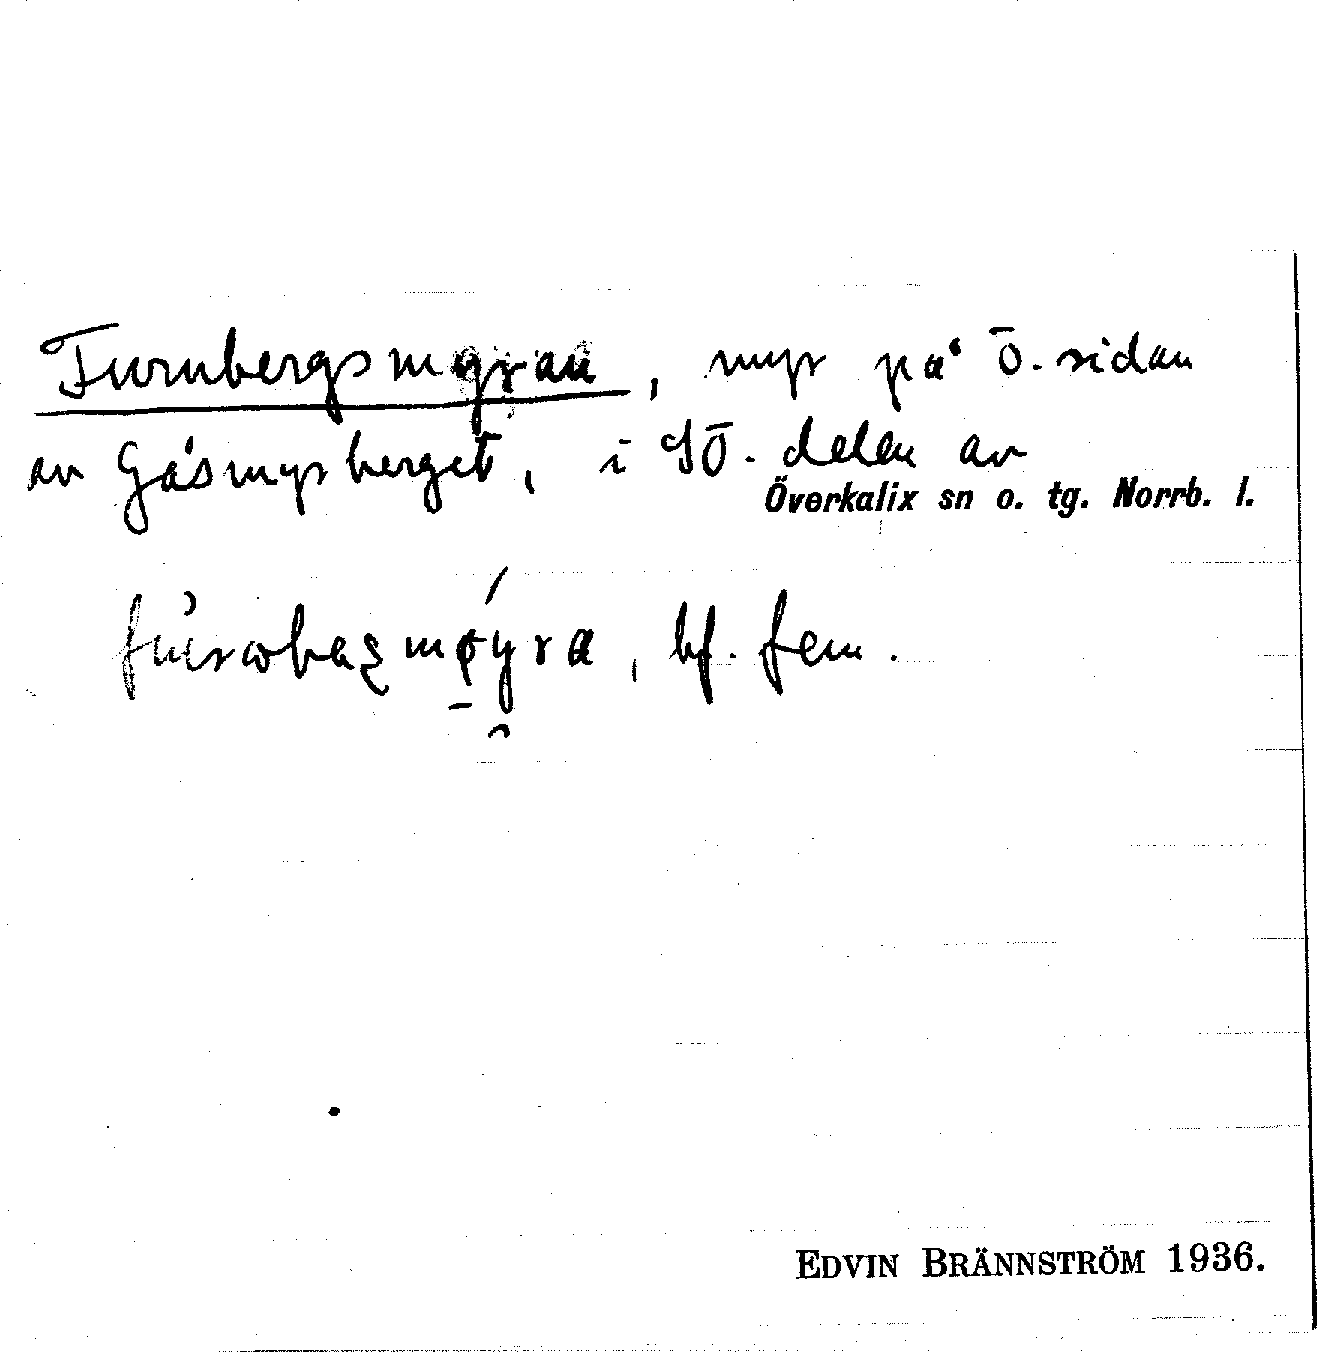 Furnbergsmyran, myr på ö. sidan
av Gåsmyrberget, i SÖ. delen av
Överkalix sn o. tg. Norrb. l.
bf. fem.
EDVIN BRÄNNSTRÖM 1936.